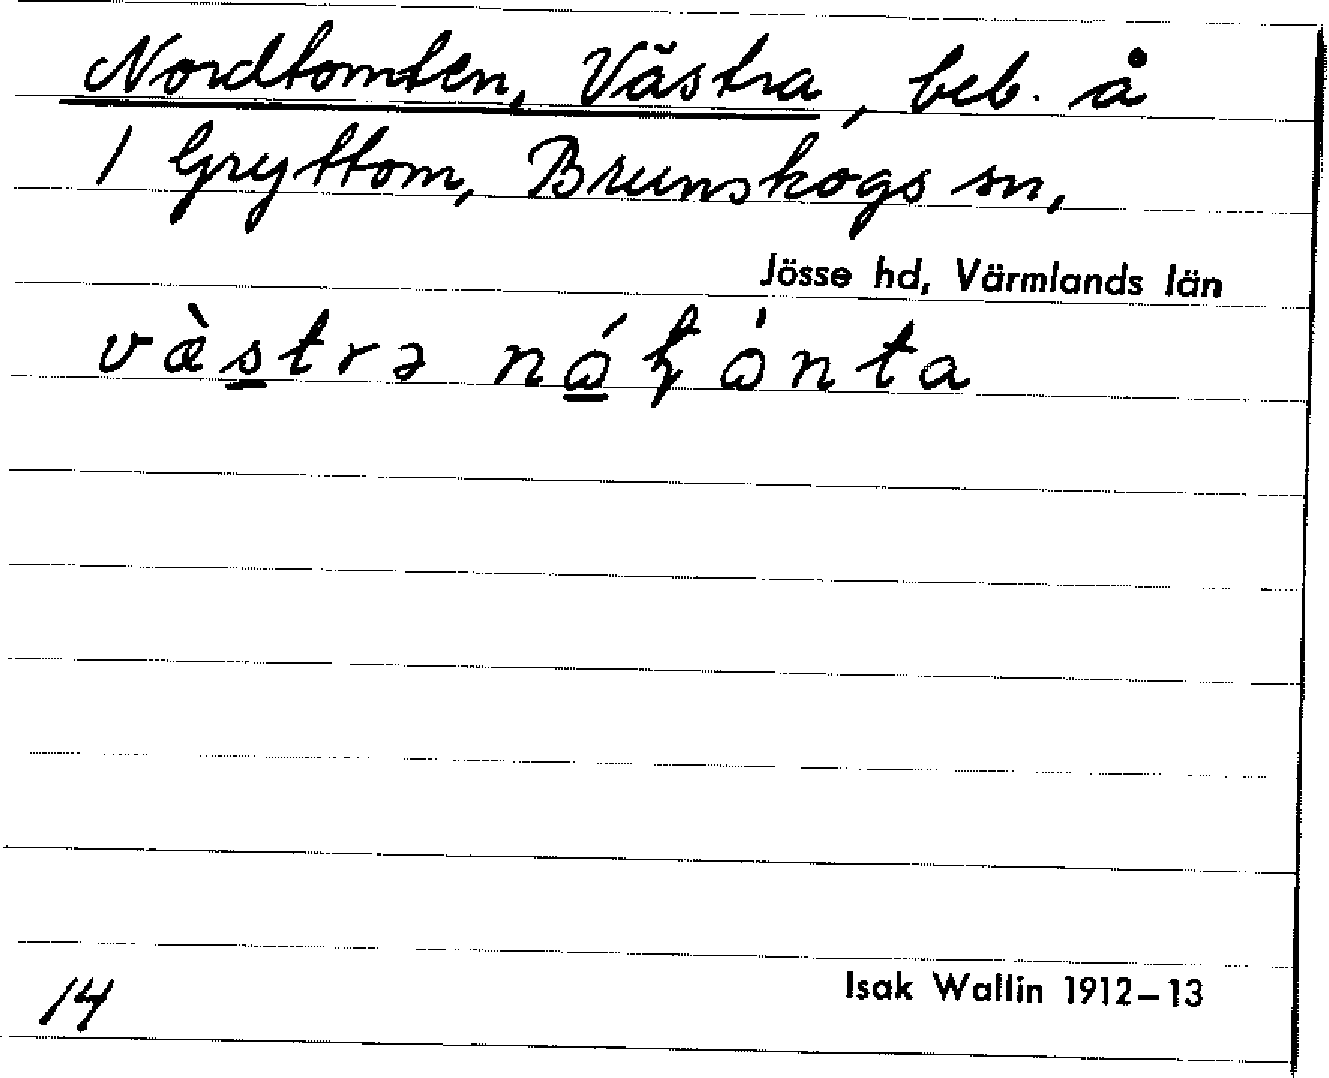 Nordtomten, Västra, beb. å
1 Gryttom, Brunskogs sn,
Jösse hd, Värmlands län
væ̀strə
14
Isak Wallin 1912–13